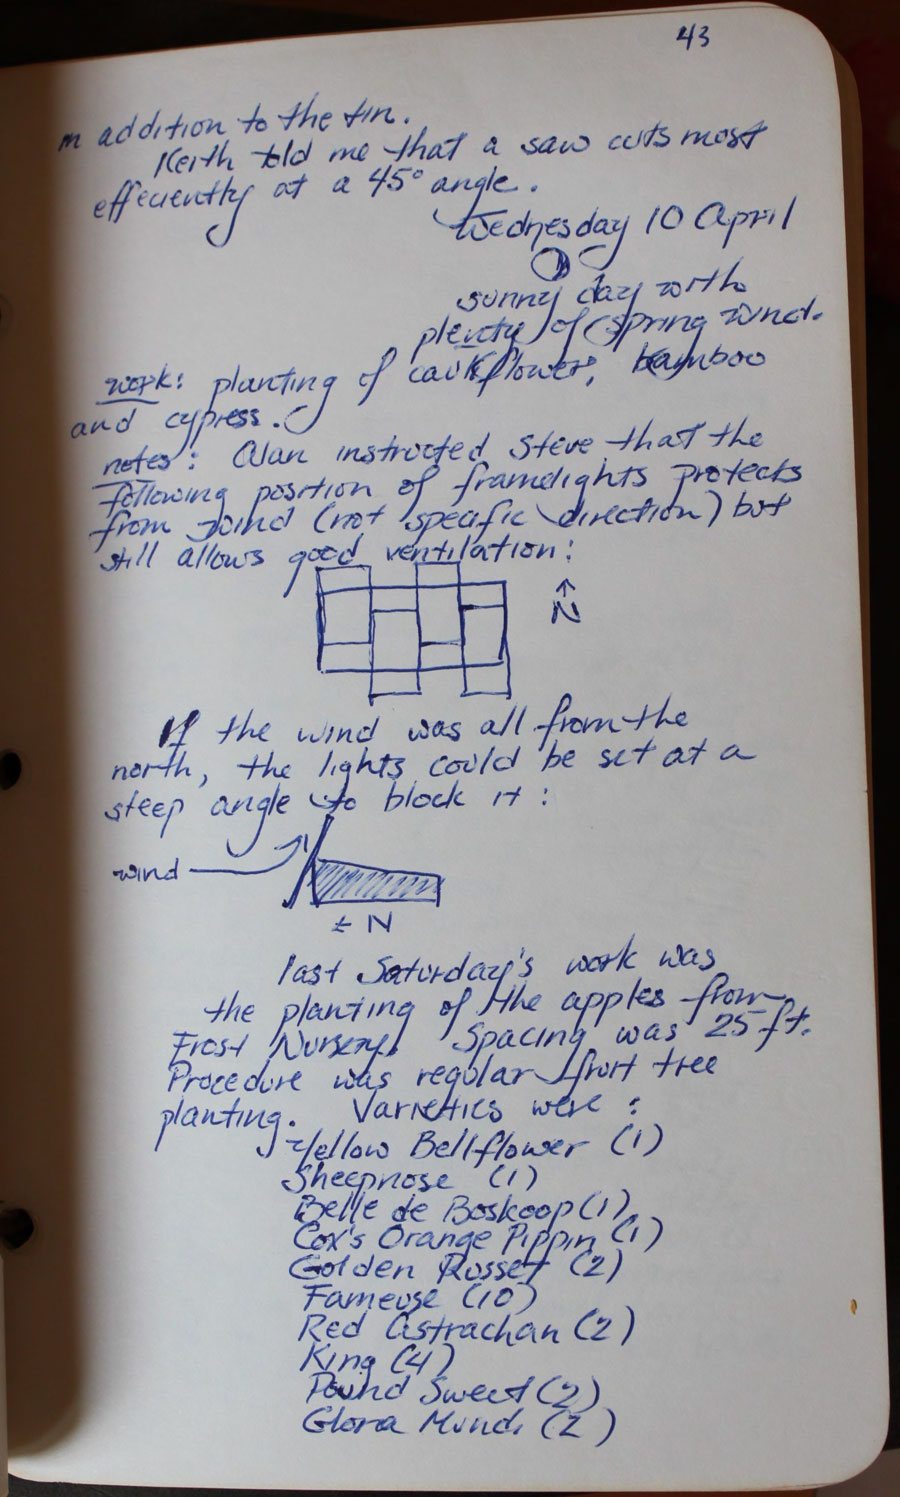 43
in addition to the tin.
Keith told me that a saw cuts most
effeciently at a 45° angle.
Wednesday 10 April
sunny day with
plenty of spring wind.
work: planting of cauliflower, bamboo
and cypress.
notes: Alan instructed Steve that the
following position of framelights protects
from wind (not specific direction) but
still allows good ventilation:
N
If the wind was all from the
north, the lights could be set at a
steep angle to block it:
wind
± N
last Saturday's work was
the planting of the apples from
Frost Nursery. Spacing was 25 ft.
Procedure was regular fruit tree
planting. Varieties were:
Yellow Bellflower (1)
Sheepnose (1)
Belle de Boskoop (1)
Cox's Orange Pippin (1)
Golden Russet (2)
Fameuse (10)
Red Astrachan (2)
King (4)
Pound Sweet (2)
Gloria Mundi (2)